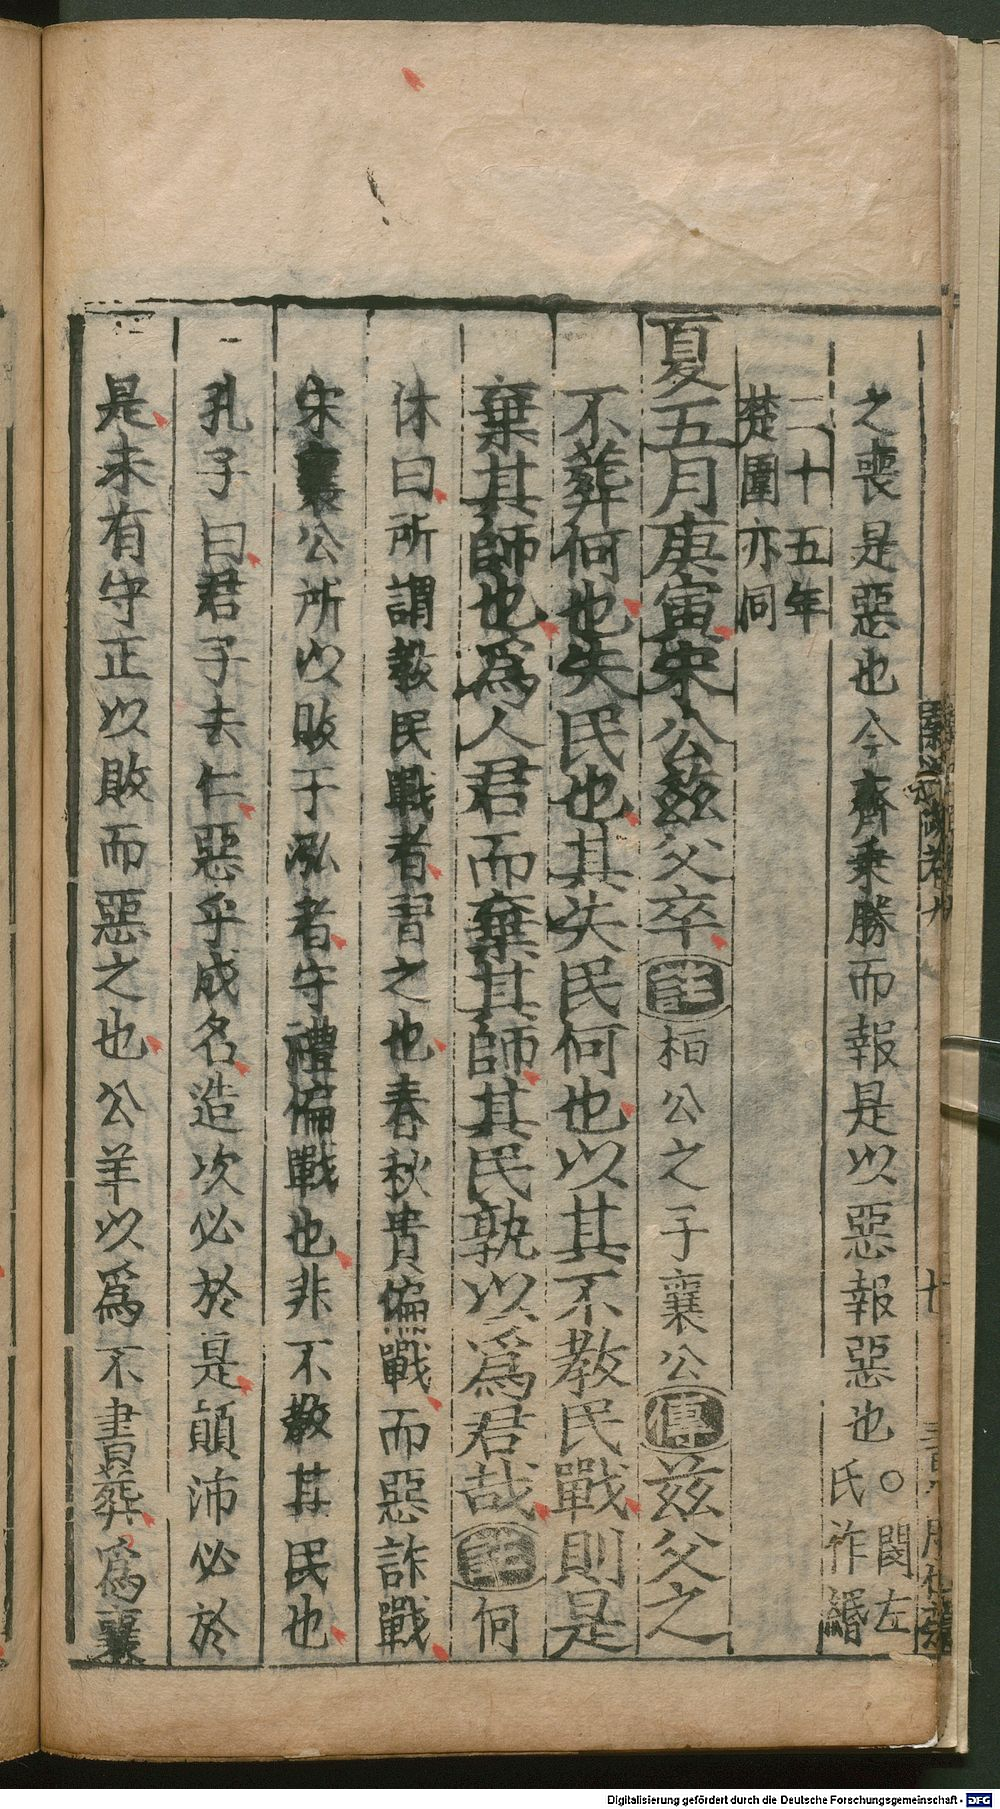 之喪是惡也今齊乗勝而報是以惡報惡也○閔左
氏作緡
二十五年
楚圍亦同
夏五月庚寅宋公兹父卒註桓公之子襄公傳兹父之
不葬何也失民也其失民何也以其不教民戰則是
棄其師也為人君而棄其師其民孰以為君哉註何
休曰所謂教民戰者習之也春秋貴偏戰而惡詐戰
宋襄公所以敗于泓者守禮偏戰也非不教其民也
孔子曰君子去仁惡乎成名造次必於是顛沛必於
是未有守正以敗而惡之也公羊以為不書葬為襄
Digitalisierung gefördert durch die Deutsche Forschungsgemeinschaft - DFG